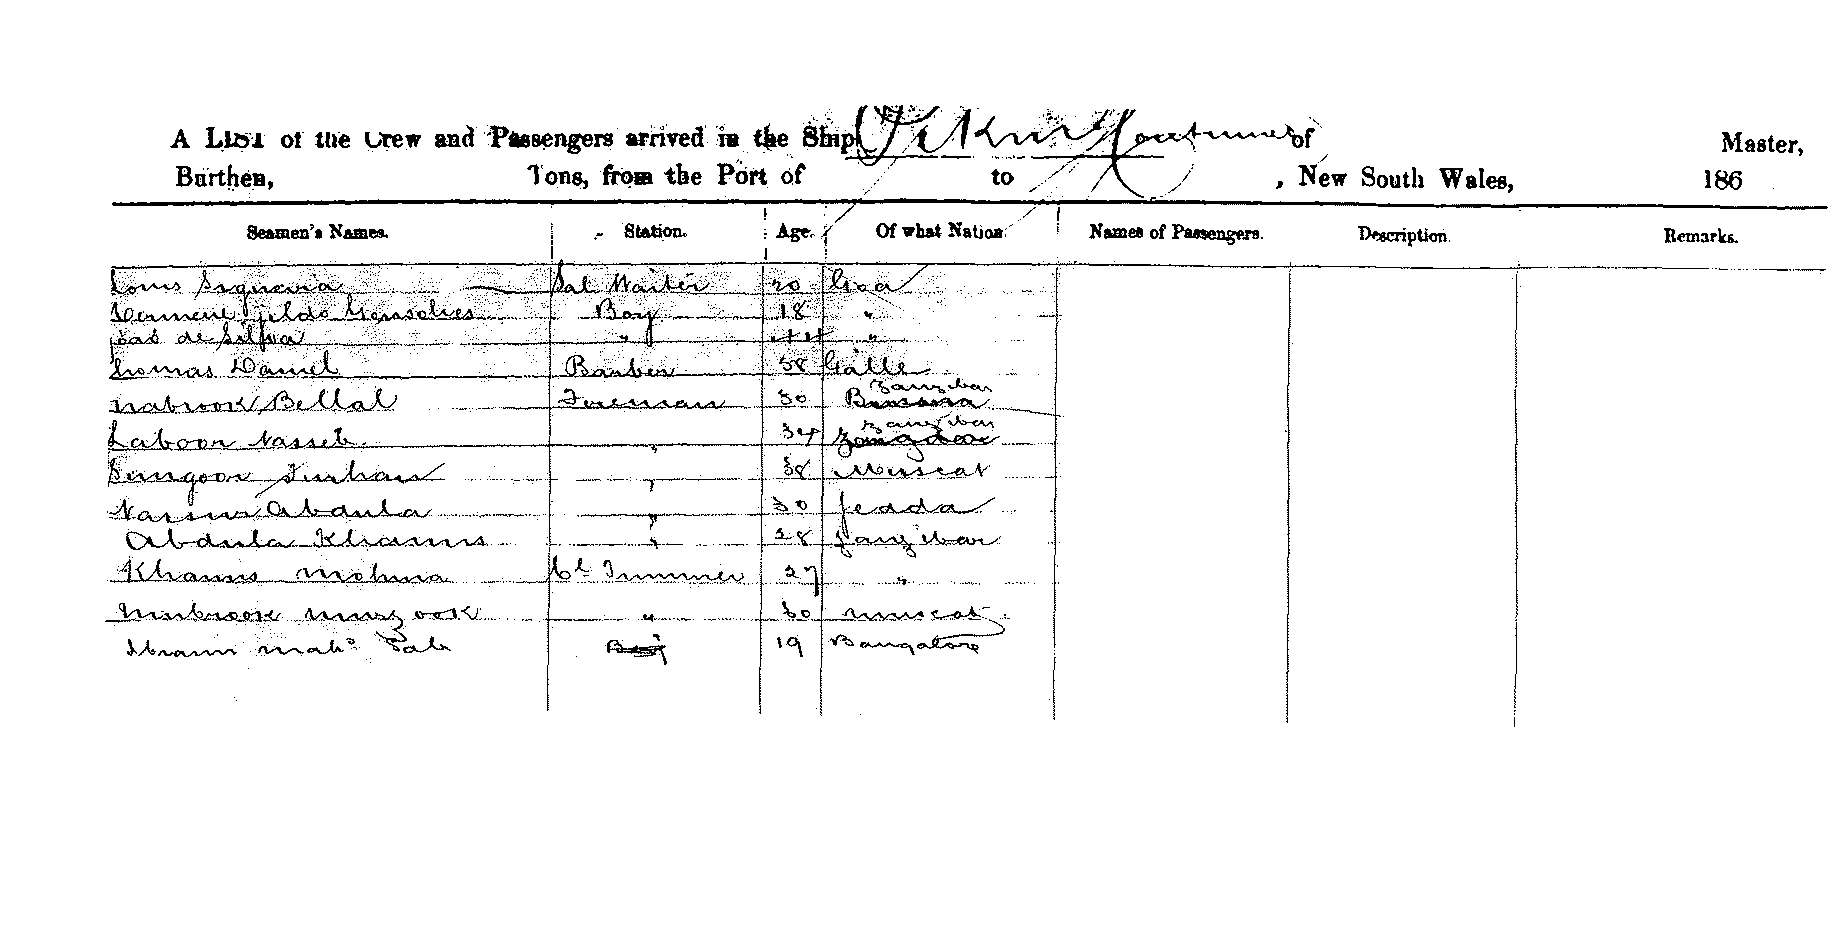 A LIST of the Crew and Passengers arrived in the Ship Pekin Continued of Master,
Burthen, Tons, from the Port of to , New South Wales, 186
Seamen's Names. Station. Age. Of what Nation. Names of Passengers. Description. Remarks.
Louis Sequeria Sal Waiter 20 Goa
Gonsolves Boy 18 "
de Silva " 44 "
Thomas Daniel Barber 38 Galle
Mabrook Bellal Fireman 30 Zanzibar
Nasseb " 34 Zanzibar
Sungoor Furhan " 38 Muscat
Abdula " 30 Jedda
Abdula Khamis " 28 Zanzibar
Khamis Cl Trimmer 27 "
Mubrook Murzook " 30 Muscat
Boy 19 Bangalore